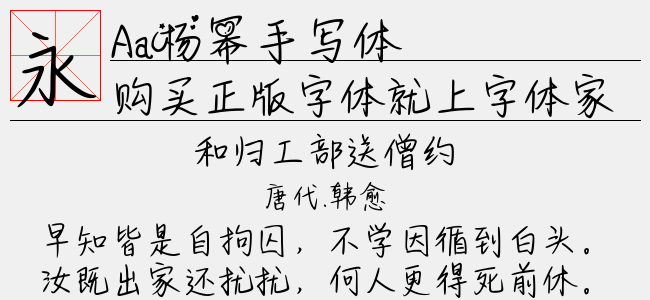 永
Aa杨幂手写体
购买正版字体就上字体家
和归工部送僧约
唐代.韩愈
早知皆是自拘囚，不学因循到白头。
汝既出家还扰扰，何人更得死前休。